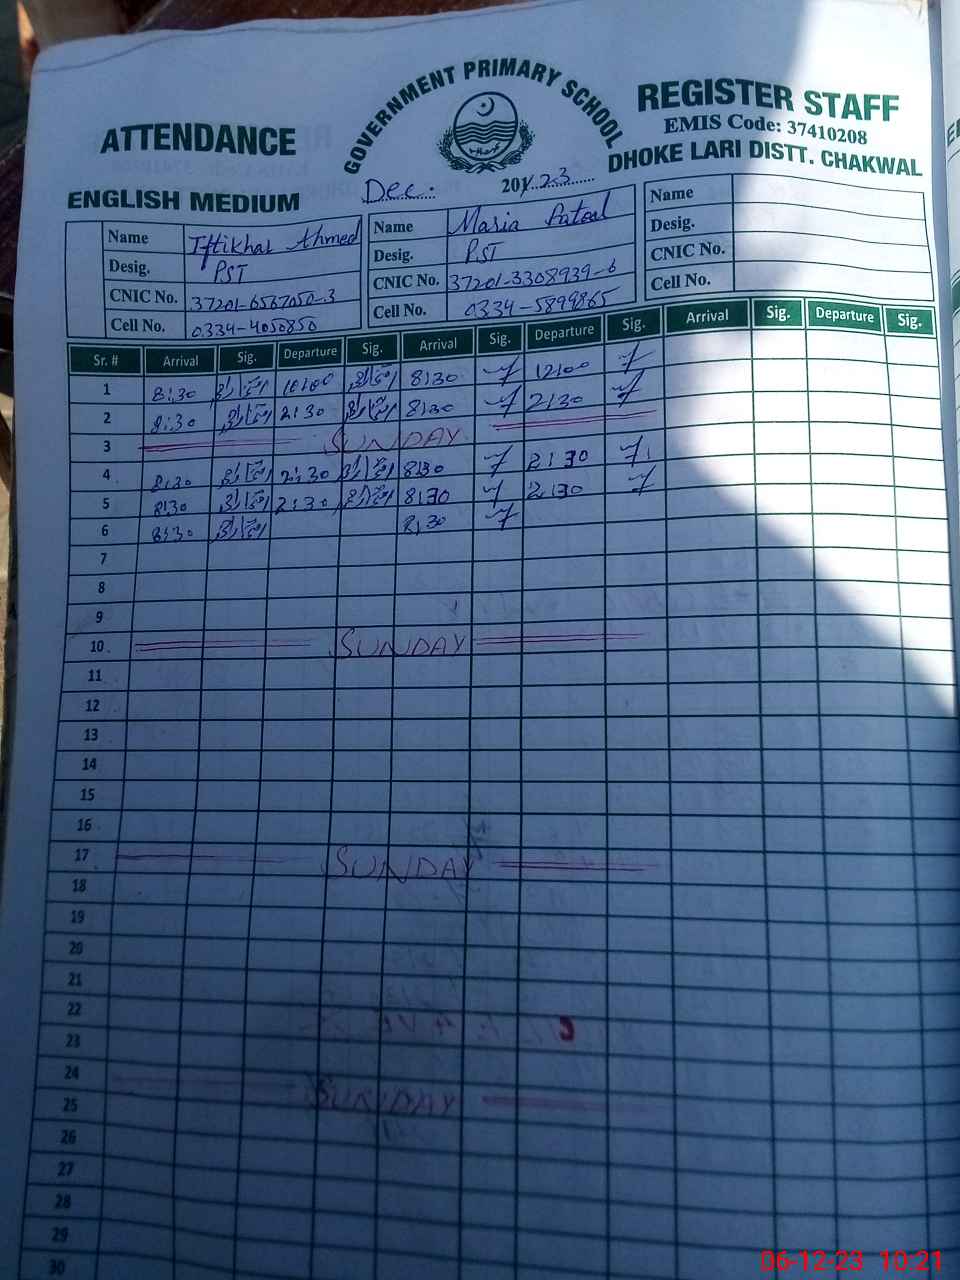 ATTENDANCE
GOVERNMENT PRIMARY SCHOOL
REGISTER STAFF
EMIS Code: 37410208
DHOKE LARI DISTT. CHAKWAL
ENGLISH MEDIUM
Dec. 2023
Name Iftikhar Ahmed Name Maria Name
Desig. PST Desig. PST Desig.
CNIC No. 37201-6567050-3 CNIC No. 37201-3308939-6 CNIC No.
Cell No. 0334-4050850 Cell No. 0334-5899865 Cell No.
Sr. # Arrival Sig. Departure Sig. Arrival Sig. Departure Sig. Arrival Sig. Departure Sig.
1 8:30 8:30 12:00
2 8:30 2:30 8:30 2:30
3 SUNDAY
4 8:30 2:30 8:30 2:30
5 8:30 2:30 8:30 2:30
6 8:30 8:30
7
8
9
10 SUNDAY
11
12
13
14
15
16
17 SUNDAY
18
19
20
21
22
23
24 SUNDAY
25
26
27
28
29
30
06-12-23 10:21